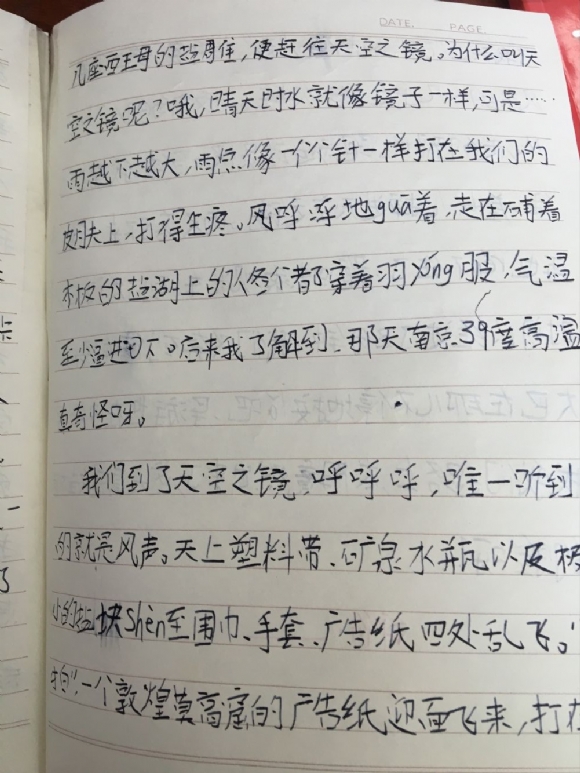 DATE. PAGE
几座西王母的盐雕, 便赶往天空之镜。为什么叫天
空之镜呢？哦, 晴天时水就像镜子一样, 可是……
雨越下越大, 雨点像一个个针一样打在我们的
皮肤上, 打得生疼。风呼呼地guā着, 走在铺着
木板的盐湖上的人个个都穿着羽róng服, 气温
至少逼进0下。后来我了解到, 那天南京39度高温
真奇怪呀。
我们到了天空之镜, 呼呼呼, 唯一听到
的就是风声。天上塑料带、矿泉水瓶以及极
小的盐块shèn至围巾、手套、广告纸四处乱飞。“
拍”, 一个敦煌莫高窟的广告纸迎面飞来, 打在